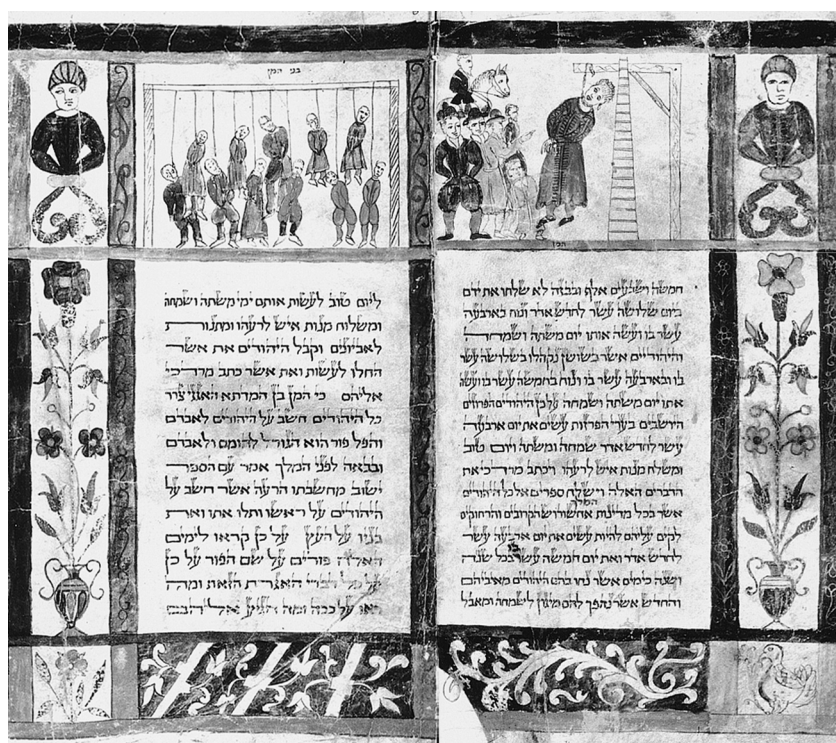 המן
חמשה ושבעים אלף ובבזה לא שלחו את ידם
ביום שלושה עשר לחדש אדר ונוח בארבעה
עשר בו ועשה אותו יום משתה ושמחה
והיהודיים אשר בשושן נקהלו בשלושה עשר
בו ובארבעה עשר בו ונוח בחמשה עשר בו ועשה
אתו יום משתה ושמחה על כן היהודים הפרוזים
הישבים בערי הפרזות עשים את יום ארבעה
עשר לחדש אדר שמחה ומשתה ויום טוב
ומשלח מנות איש לרעהו ויכתב מרדכי את
הדברים האלה וישלח ספרים אל כל היהודים
המלך
אשר בכל מדינות אחשורוש הקרובים והרחוקים
לקים עליהם להיות עשים את יום ארבעה עשר
בו
לחדש אדר ואת יום חמשה עשר בכל שנה
ושנה כימים אשר נחו בהם היהודים מאיביהם
והחדש אשר נהפך להם מיגון לשמחה ומאבל
בני המן
ליום טוב לעשות אותם ימי משתה ושמחה
ומשלוח מנות איש לרעהו ומתנות
לאביונים וקבל היהודים את אשר
החלו לעשות ואת אשר כתב מרדכי
אליהם כי המן בן המדתא האגגי צורר
כל היהודים חשב על היהודים לאבדם
והפל פור הוא הגורל להומם ולאבדם
ובבאה לפני המלך אמר עם הספר
ישוב מחשבתו הרעה אשר חשב על
היהודים על ראשו ותלו אתו ואת
בניו על העץ על כן קראו לימים
האלה פורים על שם הפור על כן
על כל דברי האגרת הזאת ומה
ראו על ככה ומה הגיע אליהם